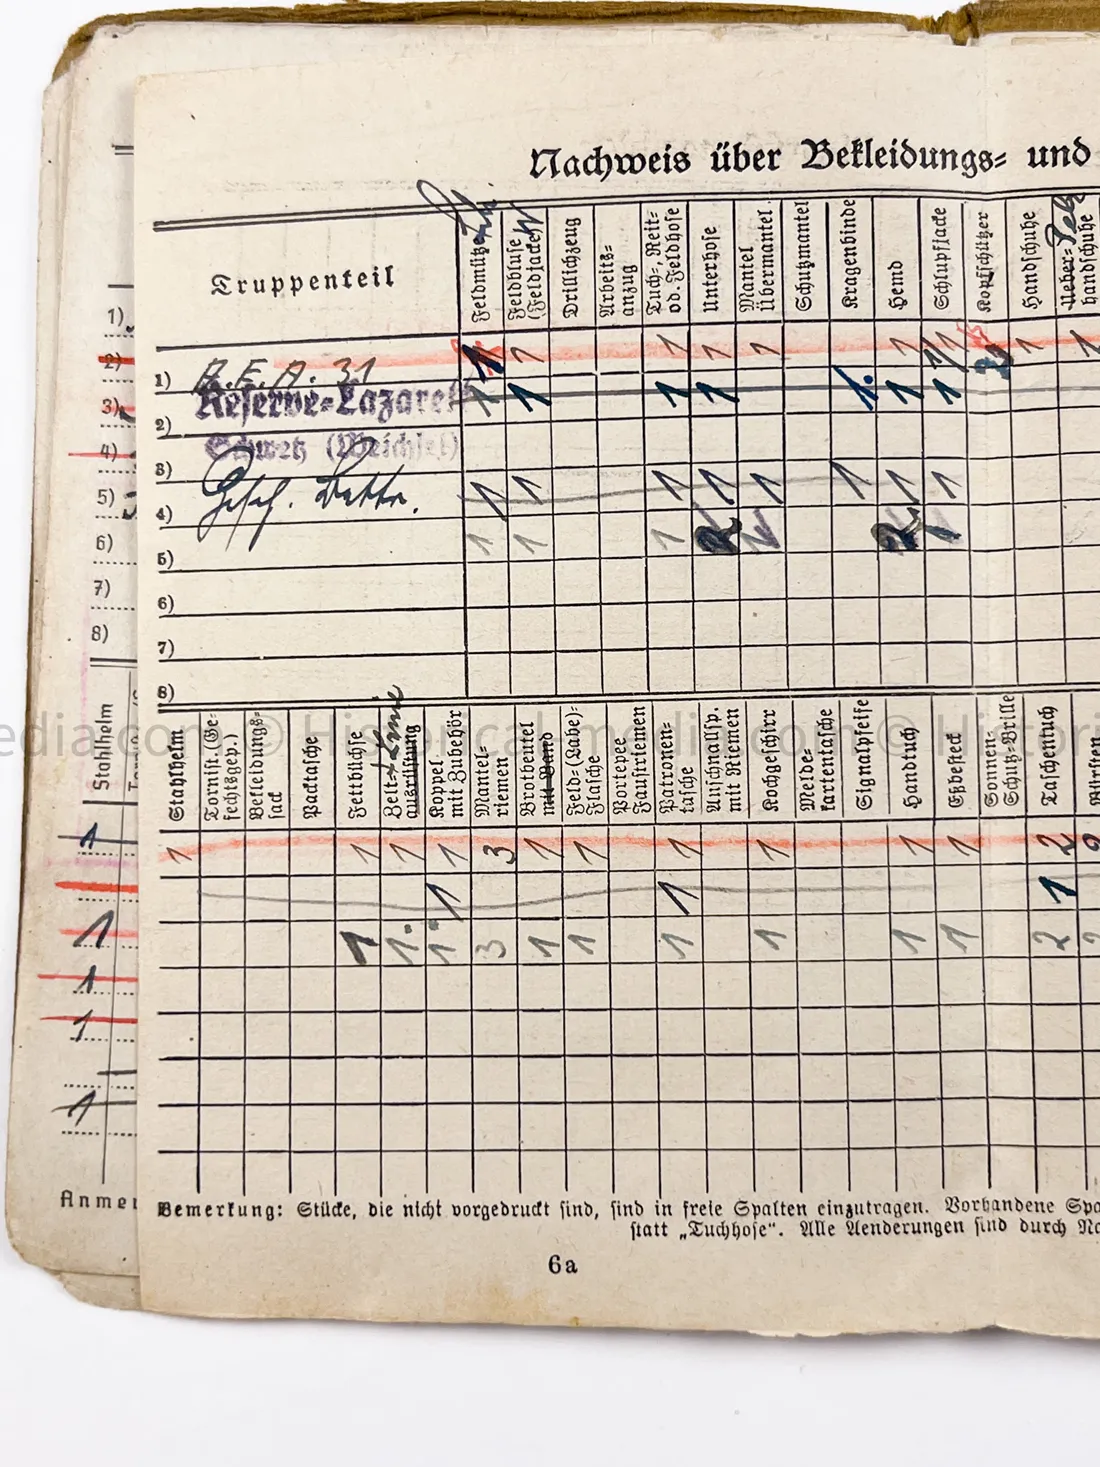 Nachweis über Bekleidungs- und
Truppenteil
Feldmütze
Feldbluse (Feldjacke)
Drillichzeug
Arbeits-anzug
Tuch-, Reit- od. Feldhose
Unterhose
Mantel Übermantel
Schutzmantel
Kragenbinde
Hemd
Schlupfjacke
Kopfschützer
Handschuhe
Ueber-handschuhe
1) 1 1 1 1 1 1 1 1 1
Reserve-Lazarett
2) 1 1 1 1 1. 1 1
Schwetz (Weichsel)
3)
4) 1 1 1 1 1 1 1 1
5) 1 1 1
6)
7)
8)
Stahlhelm
Tornist. (Ge-fechtsgep.)
Bekleidungs-sack
Packtasche
Fettbüchse
Zelt-ausrüstung
Koppel mit Zubehör
Mantel-riemen
Brotbeutel mit Band
Feld-(Labe)-Flasche
Portepee Faustriemen
Patronen-tasche
Anschnallsp. mit Riemen
Kochgeschirr
Melde-kartentasche
Signalpfeife
Handtuch
Eßbesteck
Sonnen- Schutz-Brille
Taschentuch
Bürsten
1 1 1 1 3 1 1 1 1 1 1 2 2
1 1 1
1 1. 1. 3 1 1 1 1 1 1 2 2
Bemerkung: Stücke, die nicht vorgedruckt sind, sind in freie Spalten einzutragen. Vorhandene Spa
statt „Tuchhose". Alle Aenderungen sind durch Na
6a
1)
2)
3)
4)
5)
6)
7)
8)
Stahlhelm
1
1
1
1
1
Anmer
edia.com © Historicalmedia.com © Histori